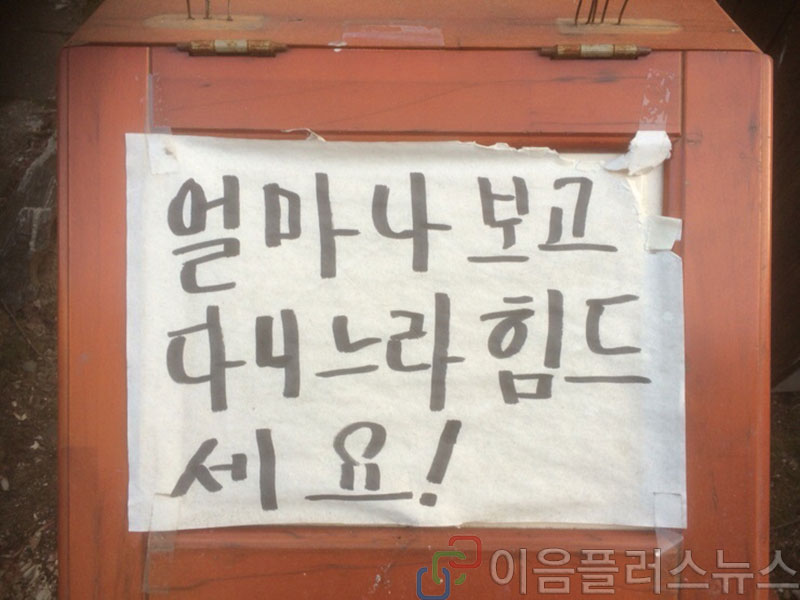 얼마나 보고
다니느라 힘드
세요!
이음플러스뉴스